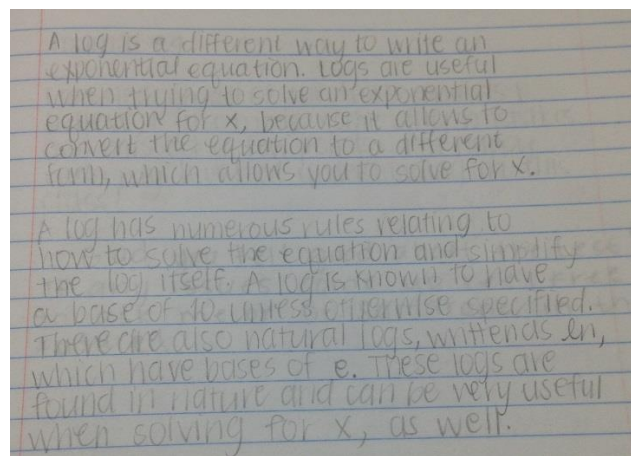 A log is a different way to write an
exponential equation. Logs are useful
when trying to solve an exponential
equation for x, because it allows to
convert the equation to a different
form, which allows you to solve for x.
A log has numerous rules relating to
how to solve the equation and simplify
the log itself. A log is known to have
a base of 10 unless otherwise specified.
There are also natural logs, written as ln,
which have bases of e. These logs are
found in nature and can be very useful
when solving for x, as well.